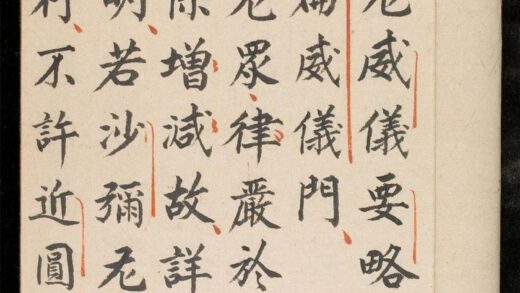 尼威儀要略
威儀門
尼眾律嚴於
增減故詳
明若沙彌尼
不許近圓